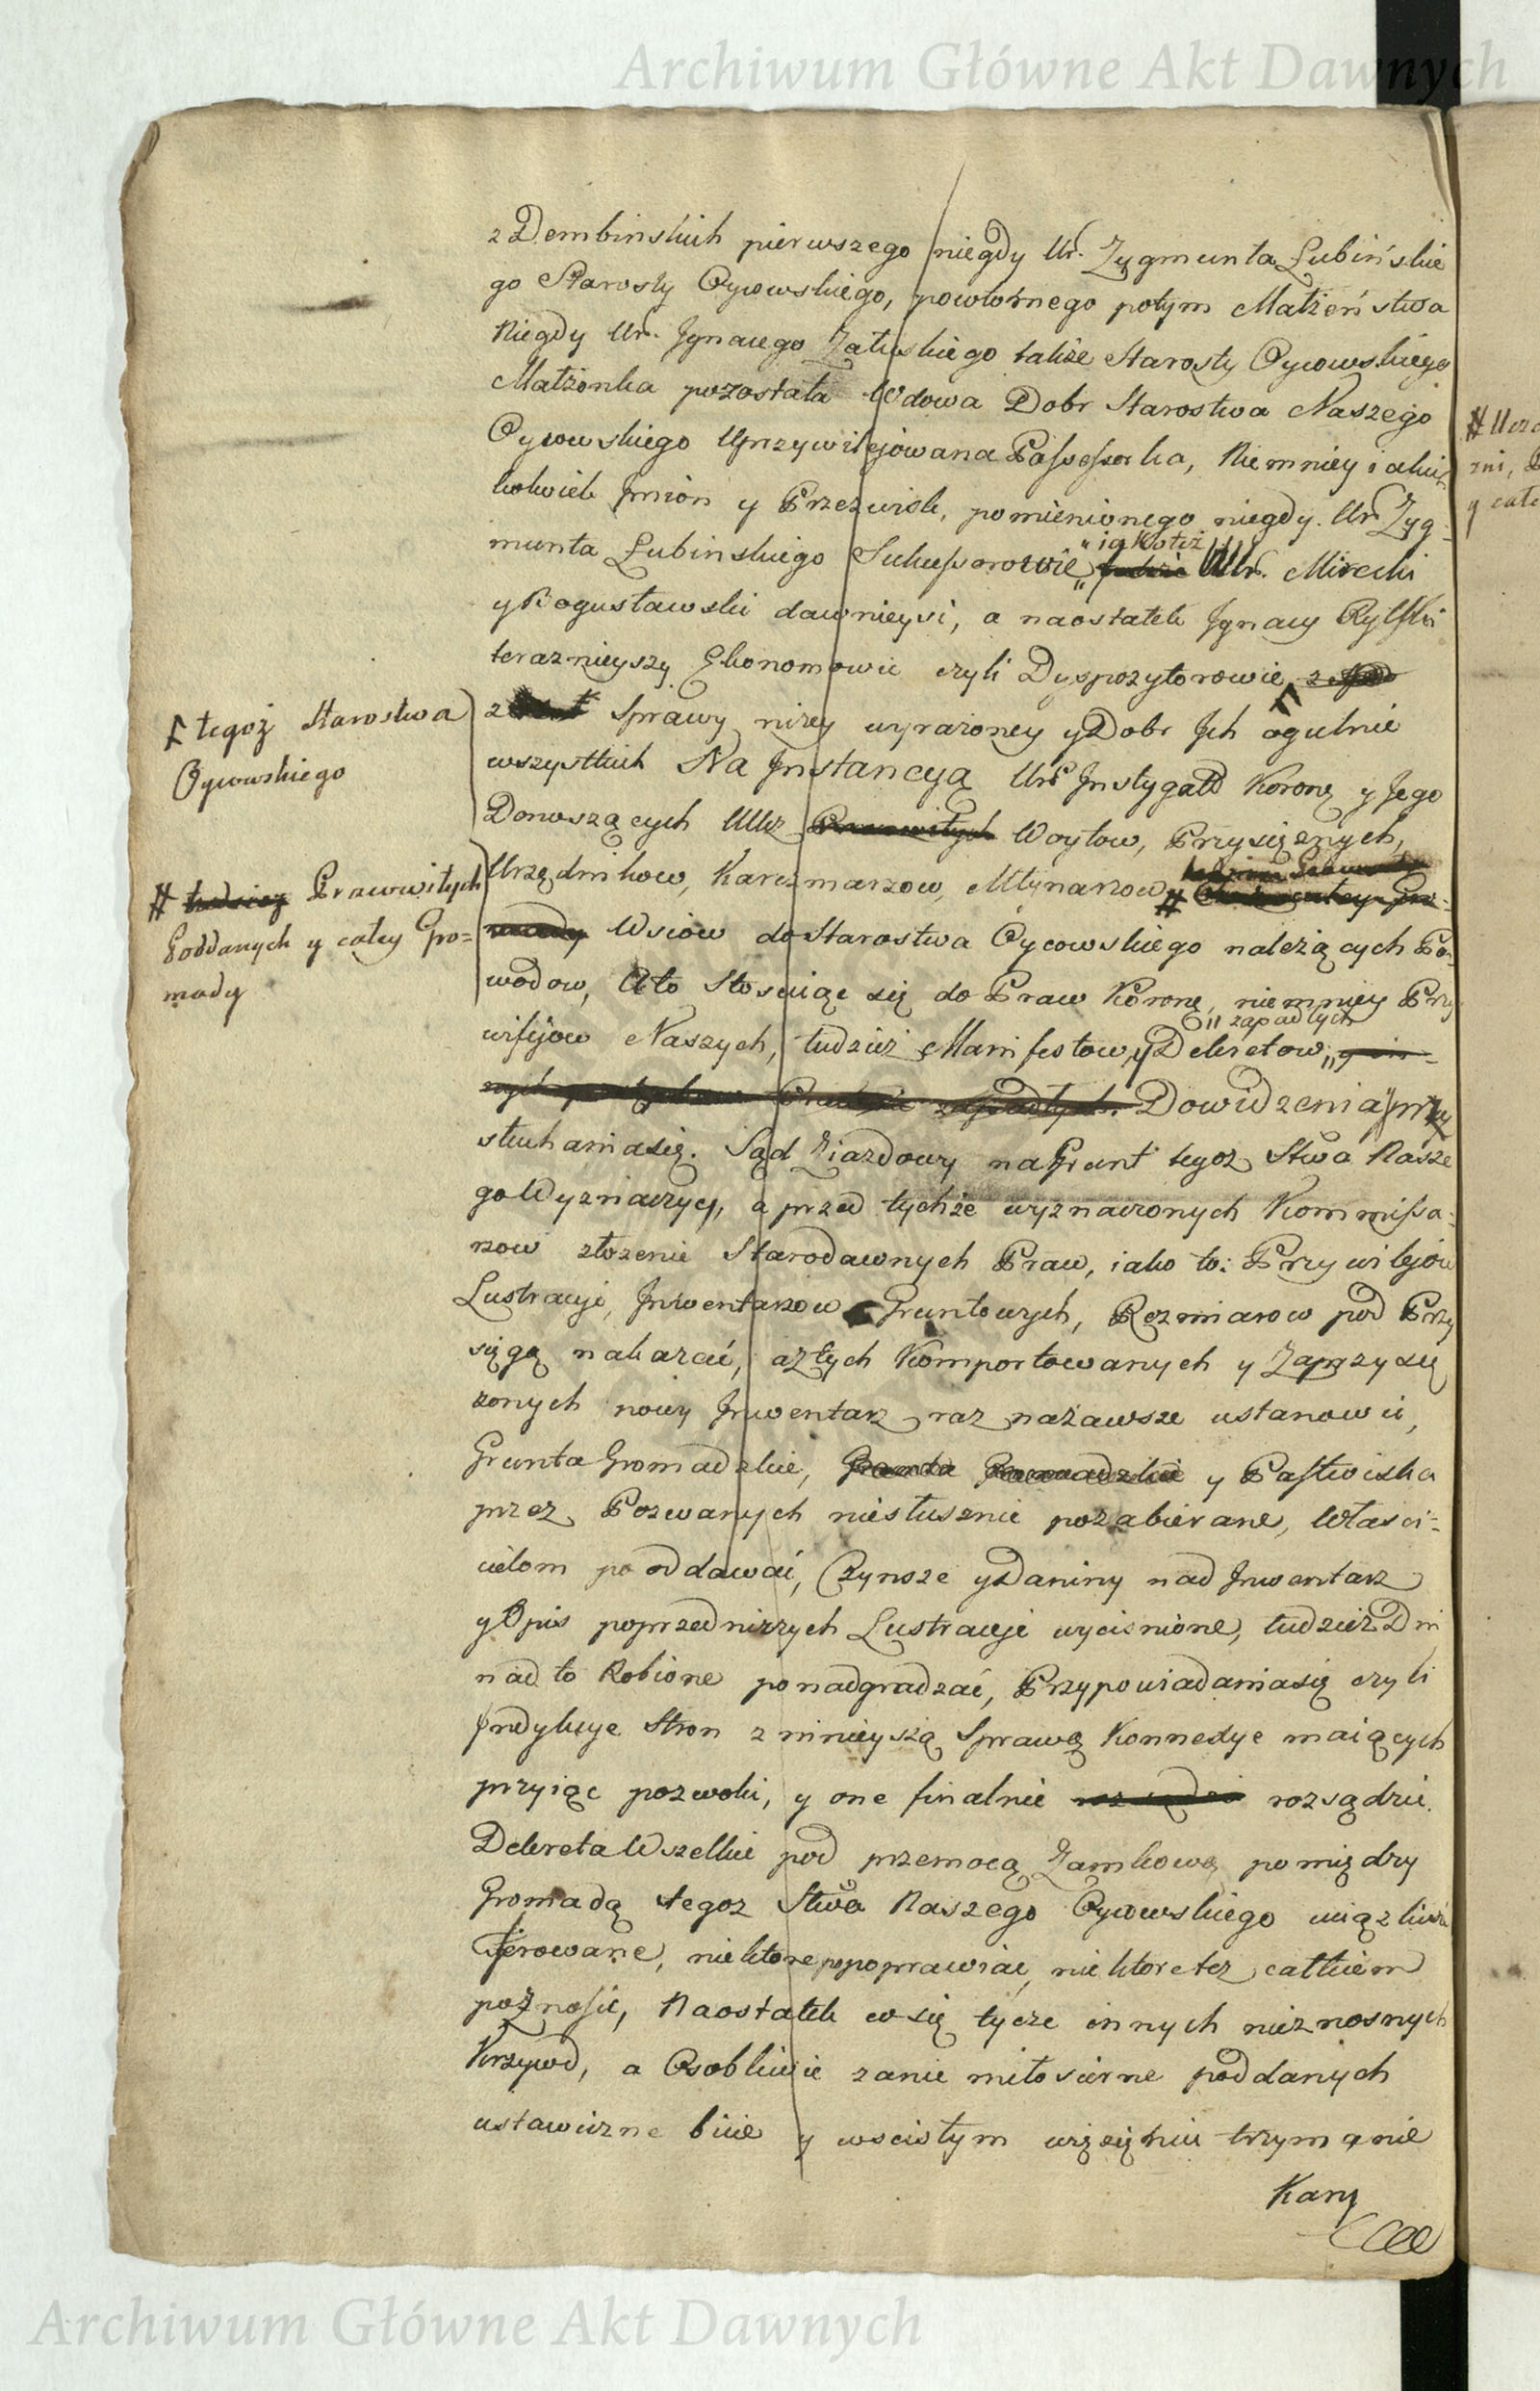 Archiwum Główne Akt Dawnych
z Dembinskich pierwszego niegdy Ur. Zygmunta Łubińskie
go Starosty Oycowskiego, powtornego potym Małżeństwa
Niegdy Ur. Jgnacego Załuskiego także Starosty Oycowskiego
Małżonka pozostała Wdowa Dobr Starostwa Naszego
Oycowskiego Uprzywilejowana Possessorka, Niemniey iakich
kolwiek Jmion y Przezwisk, pomienionego niegdy Ur Zyg-
munta Łubinskiego Sukcessorowie „iako też UUr. Mirecki
y Bogusławski dawnieysi, a naostatek Jgnacy Rylski
teraznieyszy Ekonomowie czyli Dyspozytorowie
tegoż Starostwa
Oycowskiego
z Sprawy niżey wyrażoney y Dobr Jch ogulnie
wszystkich Na Jnstancyą Ur Jnstygato Koronę y Jego
Donoszących UUcz Prawowitych Woytow, Przysiężnych,
Urzędnikow, Karczmarzow, Młynarzow #
# tudziesz Prawowitych
Poddanych y całey Gro=
mady
Wsiow do Starostwa Oycowskiego należących Po-
wodow, Ato Stosuiąc się do Praw Koronę, niemniey Przy
wilejow Naszych, tudzież Manifestow, y Dekretow, „zapadłych
Dowidzenia y przy
słuchania się. Sąd Ziazdowy na Grunt tegoz Stwa Nasze
go Wyznaczyć, a przed tychże wyznaczonych Kommissa-
rzow złożenie Starodawnych Praw, iako to: Przywilejow
Lustracyi, Jnwentarzow Gruntowych, Rozmiarow pod Przy
sięgą nakazać, a z tych Komportowanych y Zaprzysię
żonych nowy Jnwentarz raz na zawsze ustanowić,
Grunta Gromadzkie, Grunta Gromadzkie y Pastwiska
przez Pozwanych niesłusznie pozabierane, Własci-
cielom po oddawać, Czynsze y Daniny nad Jnwentarz
y Opis poprzedniczych Lustracyi wycisnione, tudzież Dni
nad to Robione ponadgradzać, Przypowiadania się czyli
Jndykcye Stron z ninieyszą Sprawą Konnexye maiących
przyiąc pozwoli, y one finalnie rozsądzi rozsądzić.
Dekreta Wszelkie pod przemocą Zamkową pomiędzy
Gromadą tegoz Stwa Naszego Oycowskiego uciążliwie
Ferowane, niektore popoprawiać, niektore tez całkiem
poznosić, Naostatek co się tycze innych nieznosnych
Krzywd, a Osobliwie za nie miłosierne poddanych
ustawiczne bicie y w scisłym więzięniu trzymanie
Kary
Archiwum Główne Akt Dawnych